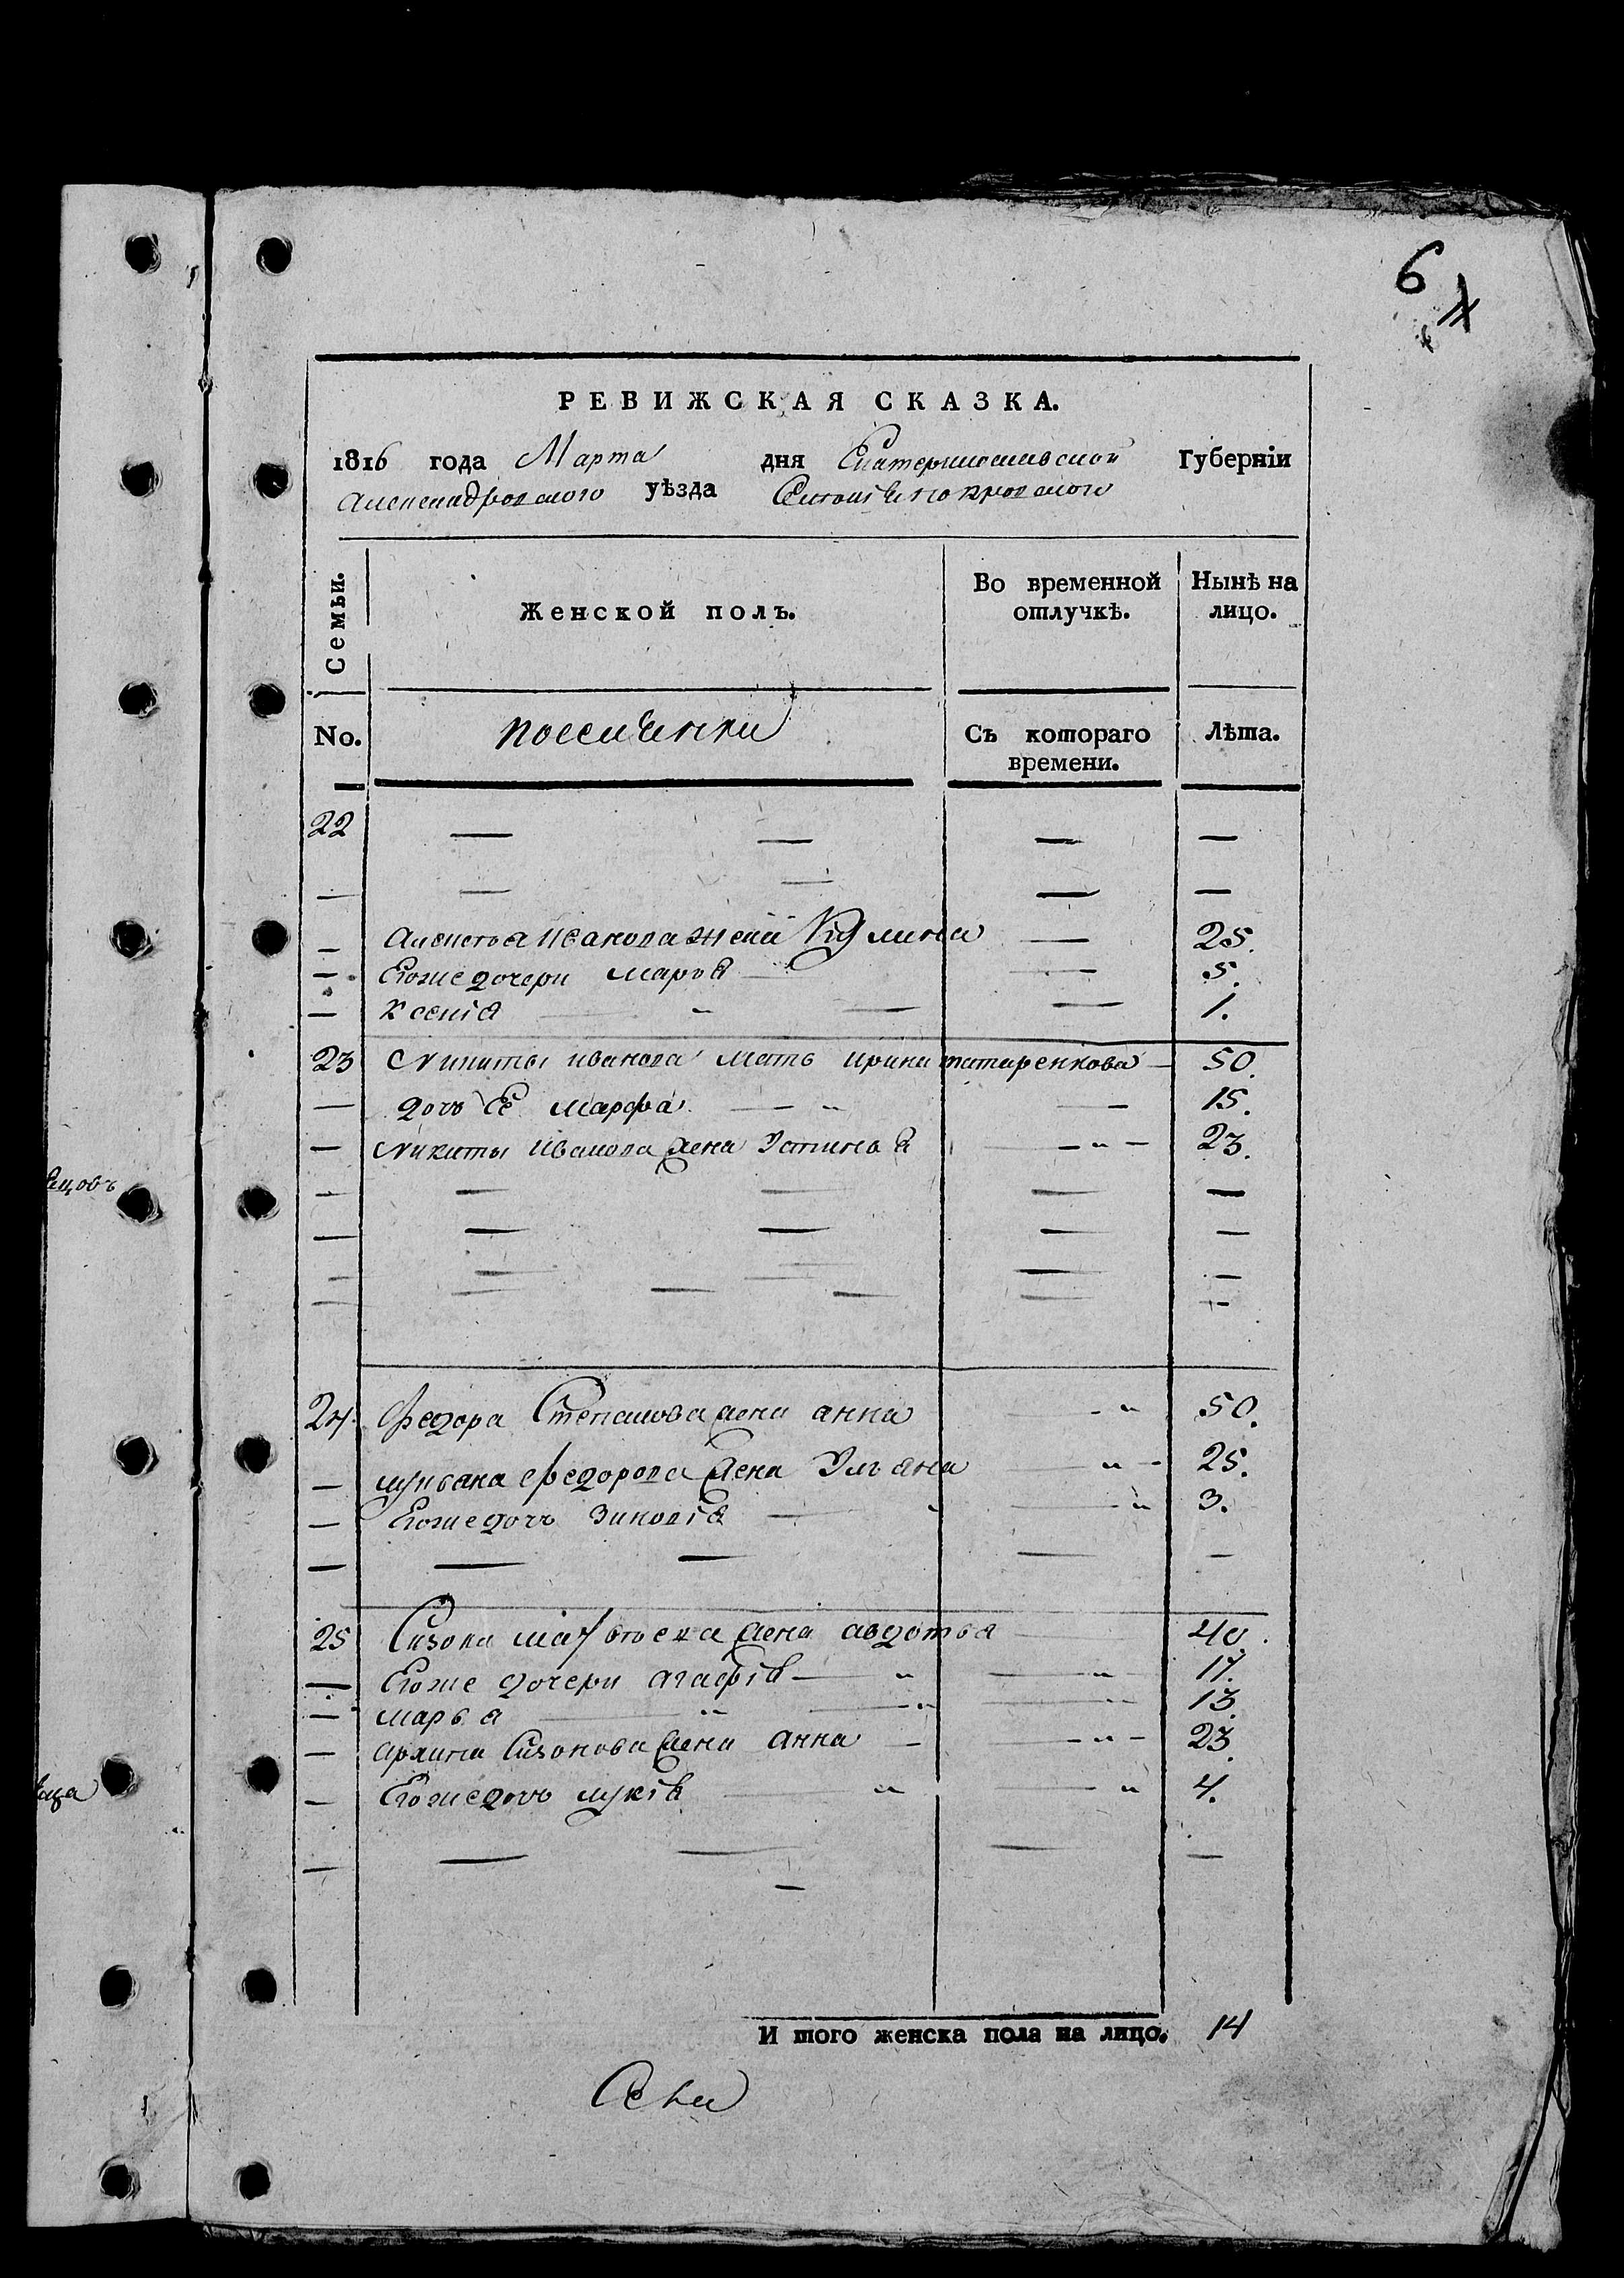 6
РЕВИЖСКАЯ СКАЗКА.
1816 года Марта дня Екатеринославской Губернїи
Александровского уѣзда
Семьи.
Женской полъ.
Во временной отлучкѣ.
Нынѣ на лицо.
No.
поселенки
Съ котораго времени.
Лѣта.
22 — — — —
— — — — —
— Алексѣя Иванова жена — 25.
— Егоже дочери марья — — 5.
— Ксенїя — — — 1.
23 Никиты иванова мать ирина татаренкова — 50.
— дочь Ее марфа — — 15.
— Никиты иванова жена Устинья — 23.
— — — — —
— — — — —
— — — — —
— — — — —
24 Федора Степанова жена анна — 50.
— лукьяна федорова жена Ульяна — 25.
— Егоже дочь Зиновїя — — 3.
— — — — —
25 Сизона жена авдотья — 40.
— Егоже дочери агафїя — — 17.
— марья — — 13.
— архипа Сизонова жена Анна — — 23.
— Егоже дочь лукїя — — 4.
— — — — —
И того женска пола на лицо. 14
ецовъ